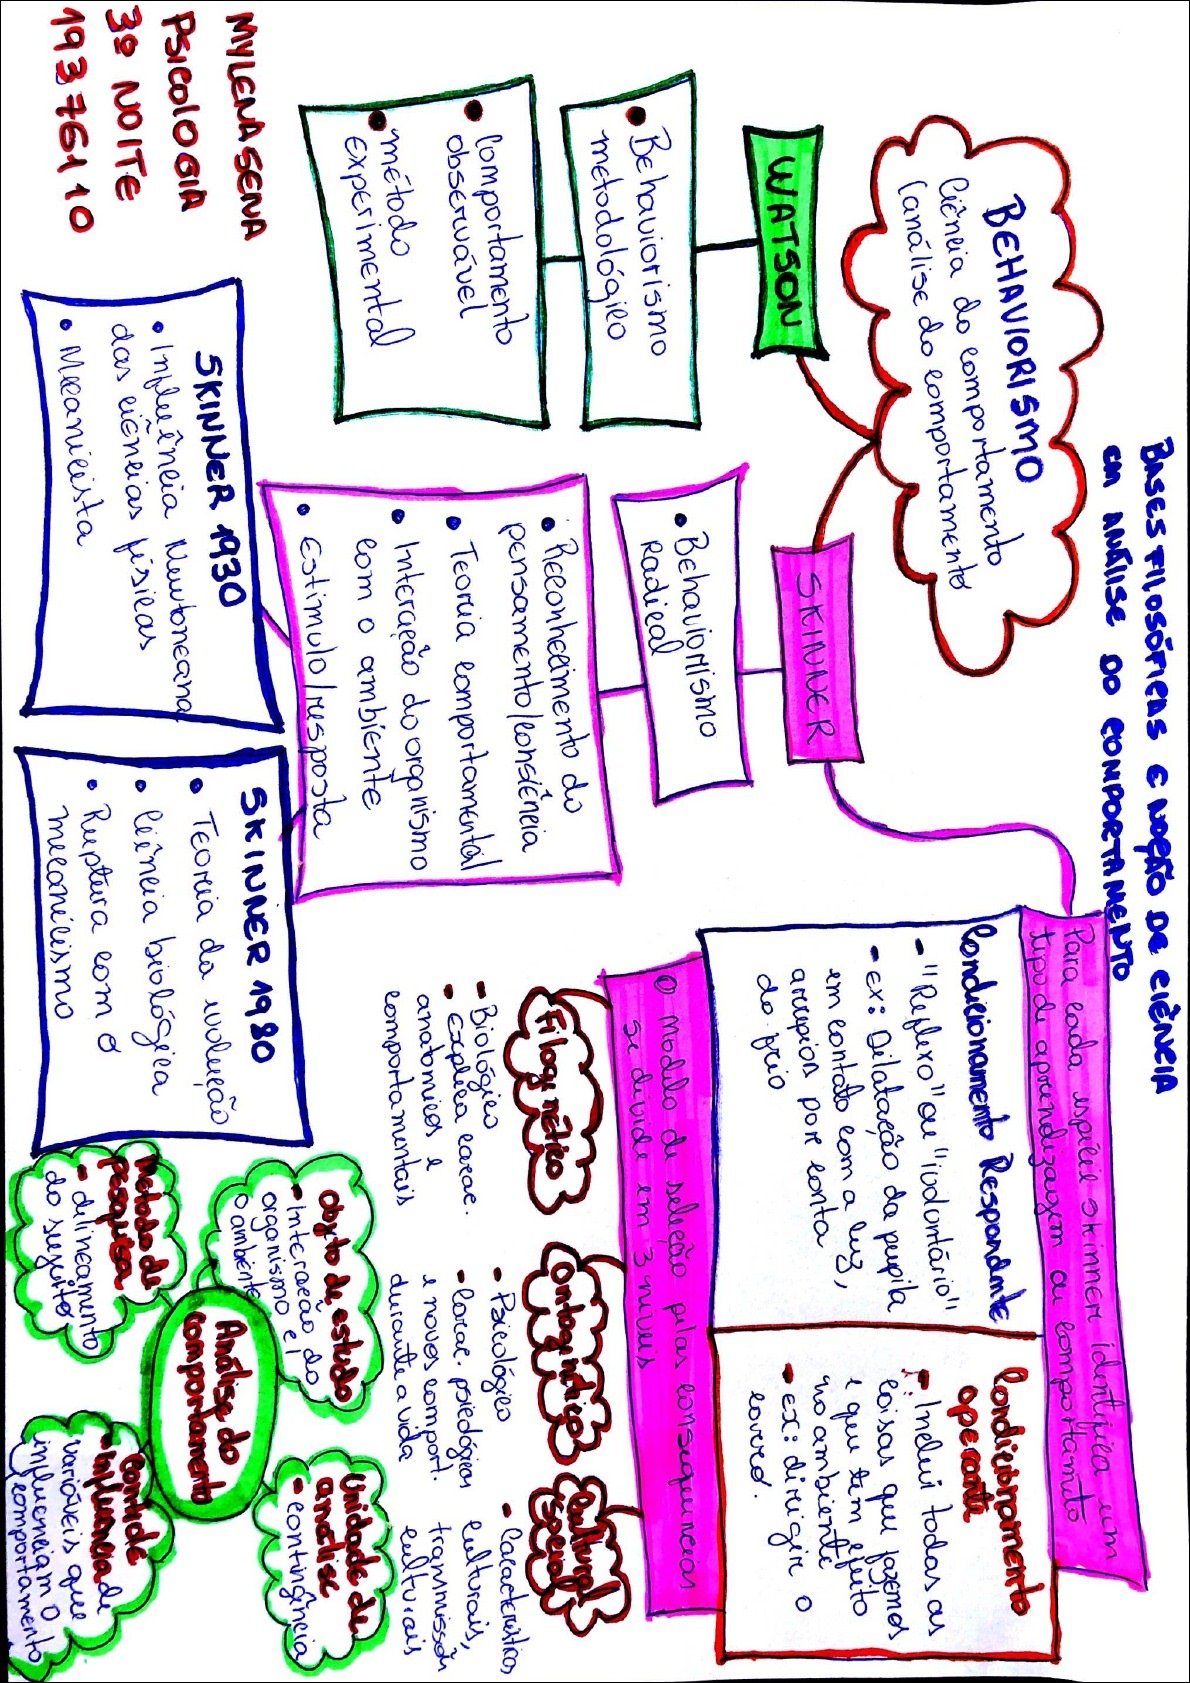 BASES FILOSÓFICAS E NOÇÃO DE CIÊNCIA
EM ANÁLISE DO COMPORTAMENTO
BEHAVIORISMO
Ciência do comportamento
(análise do comportamento)
WATSON
Behaviorismo
metodológico
Comportamento
observável
método
experimental
MYLENA SENA
PSICOLOGIA
3º NOITE
193 761 10
SKINNER
Behaviorismo
Radical
Reconhecimento do
pensamento/consciência
Teoria comportamental
Interação do organismo
com o ambiente
Estímulo/resposta
SKINNER 1930
Influência Newtoneana
das ciências físicas
Mecanicista
SKINNER 1980
Teoria da evolução
Ciência biológica
Ruptura com o
mecanicismo
Para cada espécie Skinner identifica um
tipo de aprendizagem ou comportamento
Condicionamento Respondente
- "Reflexo" ou "ivodontário"
- ex: Dilatação da pupila
em contato com a luz,
arrepios por conta
do frio
Condicionamento
operante
- Inclui todas as
coisas que fazemos
e que tem efeito
no ambiente
- ex: dirigir o
carro.
O Modulo de seleção pelas consequencias
se divide em 3 niveis
Filogenético
- Biológico
- Explica carac.
anatomicas e
comportamentais
Ontogenético
- Psicológico
- Carac. psicológicas
e novos comport.
durante a vida
Cultural
(social)
- Caracteristicas
culturais,
transmissão
culturais
Análise do
comportamento
Objeto de estudo
- Interação do
organismo e
o ambiente
Metodo de
pesquisa
- delineamento
do sujeito
Unidade de
analise
- contingência
Controle de
influencia
- Variáveis que
influenciam o
comportamento